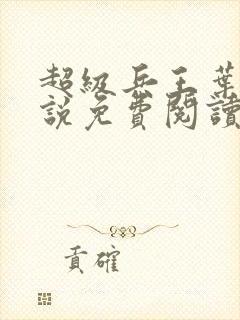 超級兵王葉
說免費閱讀
貢確